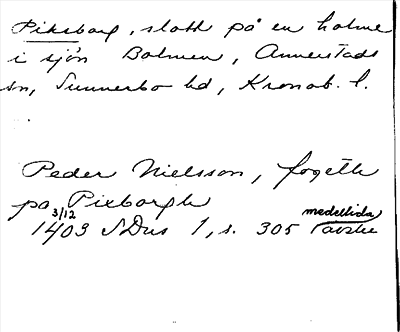 Piksborg, slott på en holme
i sjön Bolmen, Annerstads
sn, Sunnerbo hd, Kronob. l.
Peder Nielsson, fogethe
pa Pixborgh
3/12 medellida
1403 SDns 1, s. 305